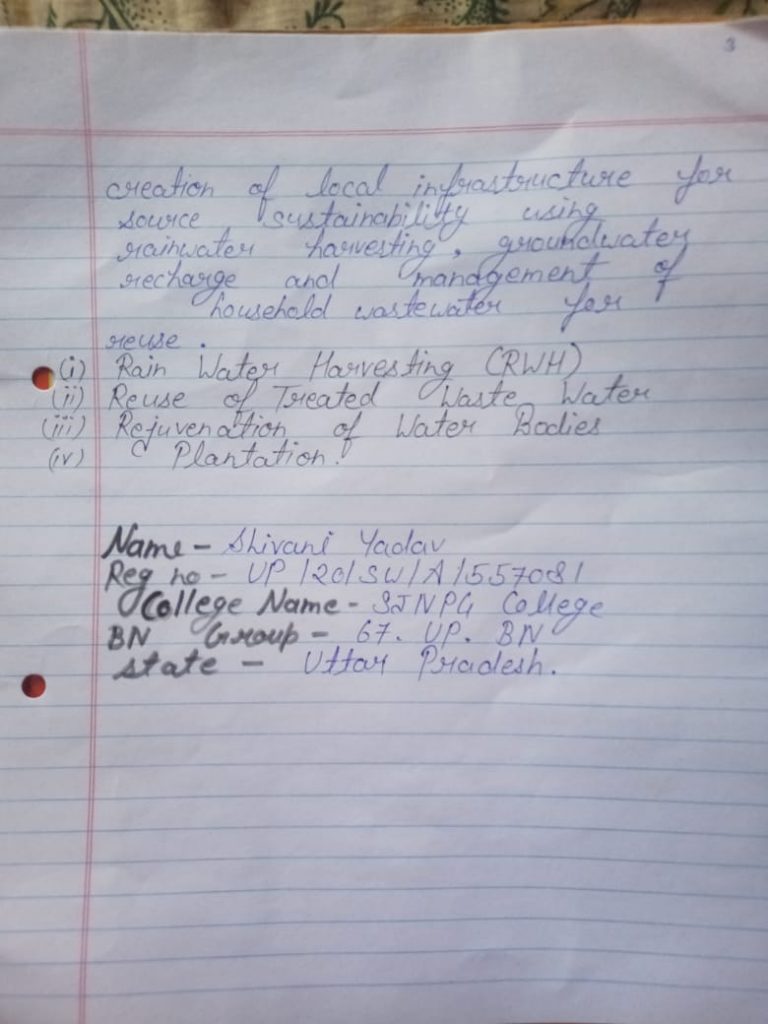 3
creation of local infrastructure for
source sustainability using
rainwater harvesting, groundwater
recharge and management of
household wastewater for
reuse.
(i) Rain Water Harvesting (RWH)
(ii) Reuse of Treated Waste Water
(iii) Rejuvenation of Water Bodies
(iv) Plantation.
Name - Shivani Yadav
Reg no - UP/20/SW/A/557081
College Name - SJNPG College
BN Group - 67. UP. BN
state - Uttar Pradesh.